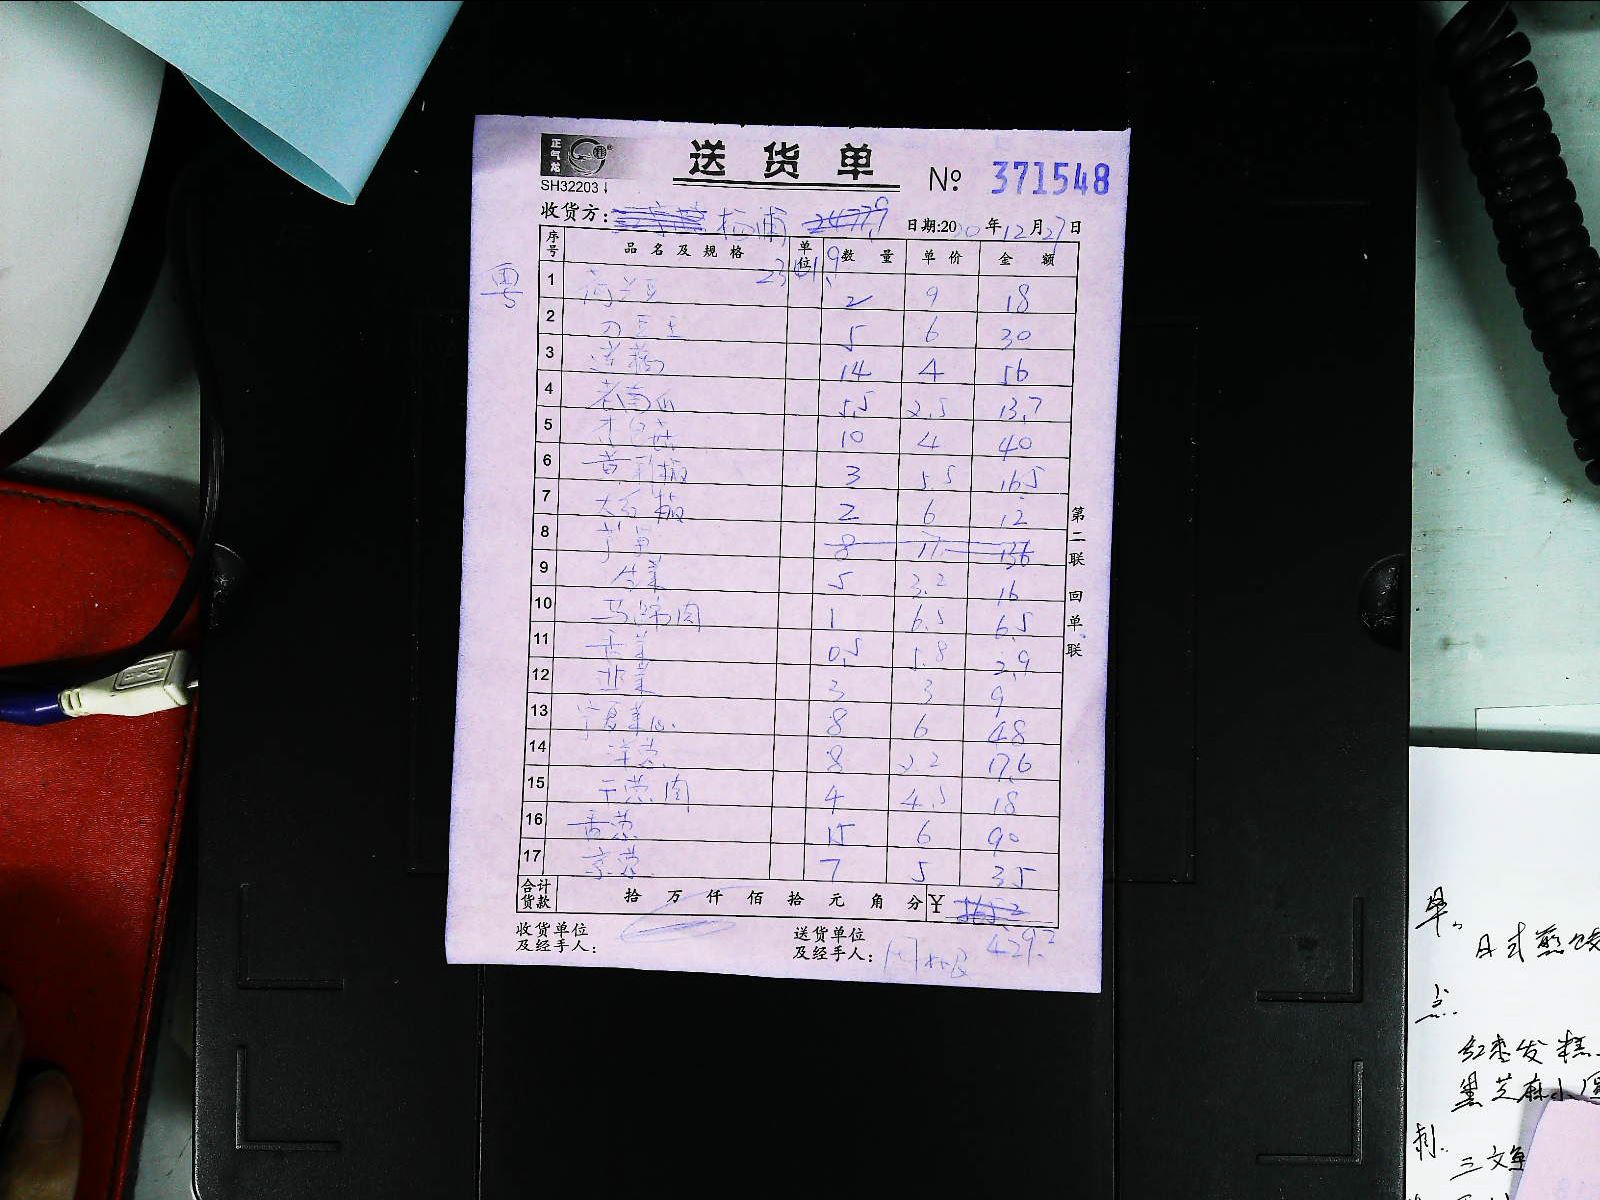 正气龙
送货单 № 371548
SH32203
收货方: 杨浦 2477.9 日期:2020年12月27日
序号 品名及规格 单位 数量 单价 金额
粤
1 荷兰豆 2 9 18
2 刀豆王 5 6 30
3 莲藕 14 4 56
4 老南瓜 5.5 2.5 13.7
5 杏包菇 10 4 40
6 黄彩椒 3 5.5 16.5
7 大红椒 2 6 12
8 8 17 136
9 生菜 5 3.2 16
10 马蹄肉 1 6.5 6.5
11 香菜 0.5 5.8 2.9
12 韭菜 3 3 9
13 宁夏菜心 8 6 48
14 洋葱 8 2.2 17.6
15 干葱肉 4 4.5 18
16 香葱 15 6 90
17 京葱 7 5 35
合计货款 拾 万 仟 佰 拾 元 角 分 ¥ 565.2
429.2
收货单位及经手人:
送货单位及经手人:
第二联 回单联
早。
日式煎饺
点.
红枣发糕
黑芝麻小